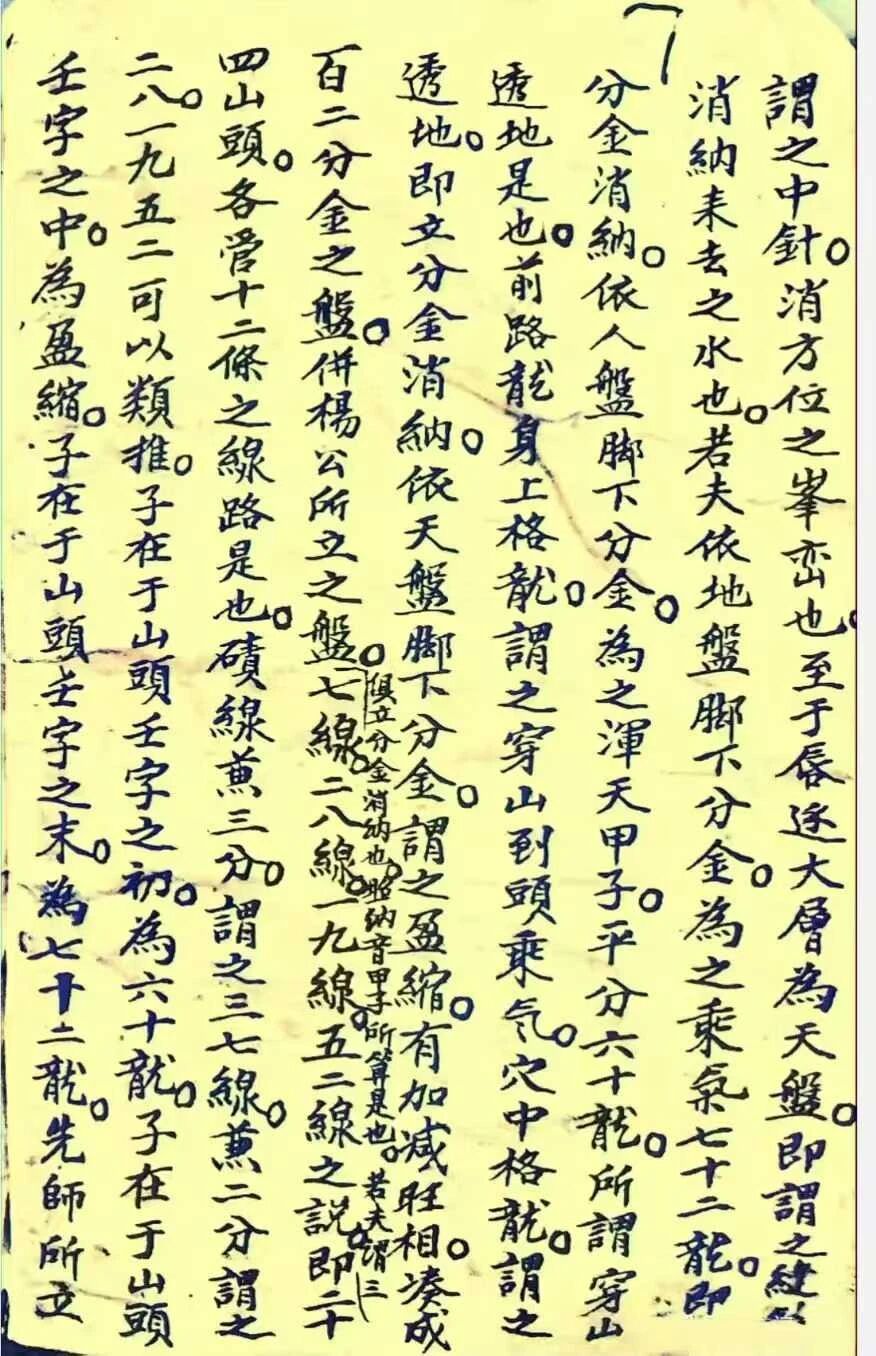 謂之中針。消方位之峯巒也。至于唇逐大層為天盤。即謂之縫針
消納来去之水也。若夫依地盤脚下分金。為之乘氣七十二龍。即
分金消納。依人盤脚下分金。為之渾天甲子。平分六十龍。所謂穿山
透地是也。前路龍身上格龍。謂之穿山到頭乘气。穴中格龍。謂之
透地。即立分金消納。依天盤脚下分金。謂之盈縮。有加减旺相。凑成
百二分金之盤。併楊公所立之盤。俱立分金消納也。照納音甲子所算是也。若夫謂三
七線。二八線。一九線。五二線之説。即二十
四山頭。各管十二條之線路是也。磧線兼三分。謂之三七線。兼二分謂之
二八。一九五二可以類推。子在于山頭壬字之初。為六十龍。子在于山頭
壬字之中。為盈縮。子在于山頭壬字之末。為七十二龍。先師所立